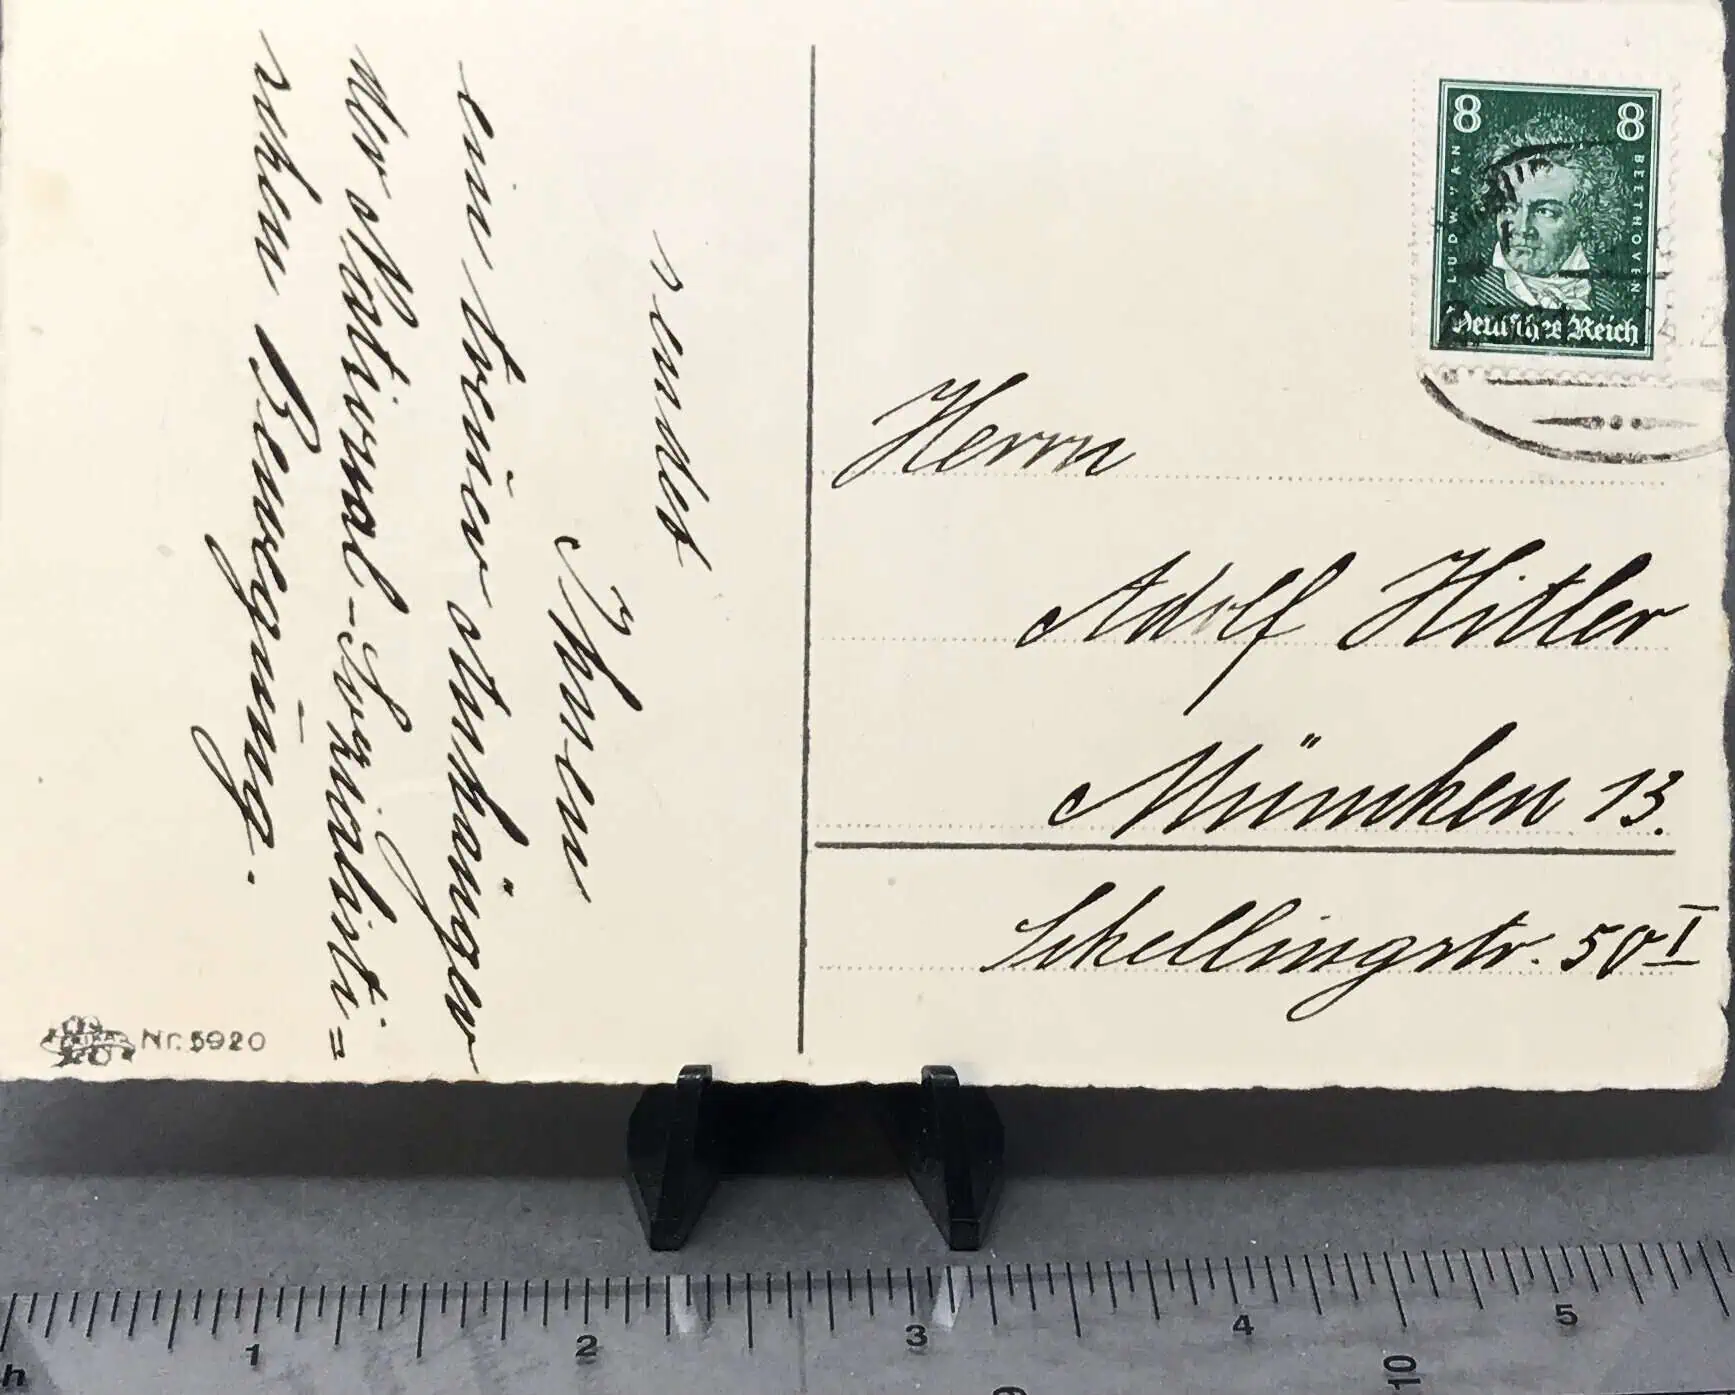 sendet
Ihnen
ein treuer Anhänger
der National-Sozialisti=
schen Bewegung.
Nr. 5920
8 8
LUDW. VAN BEETHOVEN
Deutsches Reich
Herrn
Adolf Hitler
München 13.
Schellingstr. 50 I
1 2 3 4 5
10